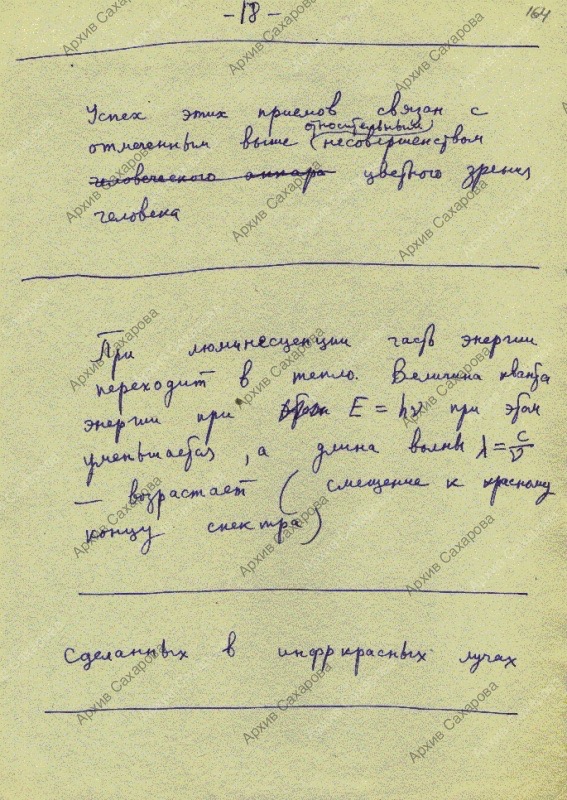 - 18 -
164
Успех этих приемов связан с
относительным
отмеченным выше несовершенством
человеческого аппара цветного зрения
человека
При люминесценции часть энергии
переходит в тепло. Величина кванта
энергии при этом E = hν при этом
уменьшается, а длина волны λ = c/ν
— возрастает (смещение к красному
концу спектра)
Сделанных в инфркрасных лучах
Архив Сахарова